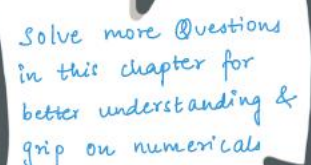 Solve more Questions
in this chapter for
better understanding &
grip on numericals